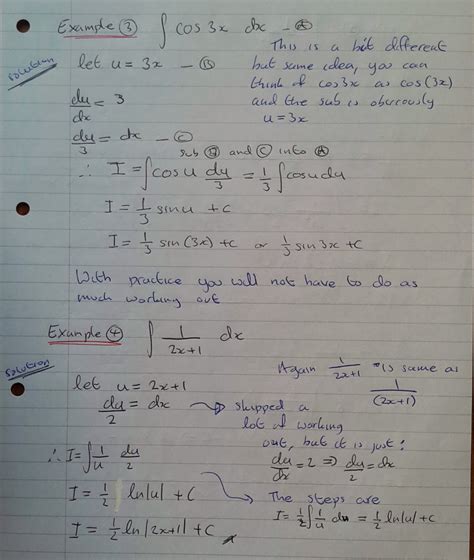 Example ③ ∫ cos 3x dx - Ⓐ
solution
This is a bit different
but same idea, you can
think of cos3x as cos(3x)
and the sub is obviously
u = 3x
let u = 3x - Ⓑ
du/dx = 3
du/3 = dx - Ⓒ
sub Ⓑ and Ⓒ into Ⓐ
∴ I = ∫cos u du/3 = 1/3 ∫cos u du
I = 1/3 sin u + C
I = 1/3 sin(3x) + C or 1/3 sin 3x + C
With practice you will not have to do as
much working out
Example ④ ∫ 1/(2x+1) dx
solution
Again 1/(2x+1) is same as
1/(2x+1)
let u = 2x+1
du/2 = dx
skipped a
lot of working
out, but it is just:
du/dx = 2 ⇒ du/2 = dx
∴ I = ∫ 1/u du/2
I = 1/2 ln|u| + C
I = 1/2 ln|2x+1| + C
The steps are
I = 1/2 ∫ 1/u du = 1/2 ln|u| + C